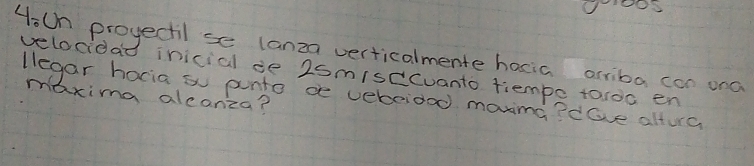 4. Un proyectil se lanza verticalmente hacia arriba con una
velocidad inicial de 25m/s ¿Cuanto tiempo tarda en
llegar hacia su punto de velocidad maxima? ¿Que altura
máxima alcanza?